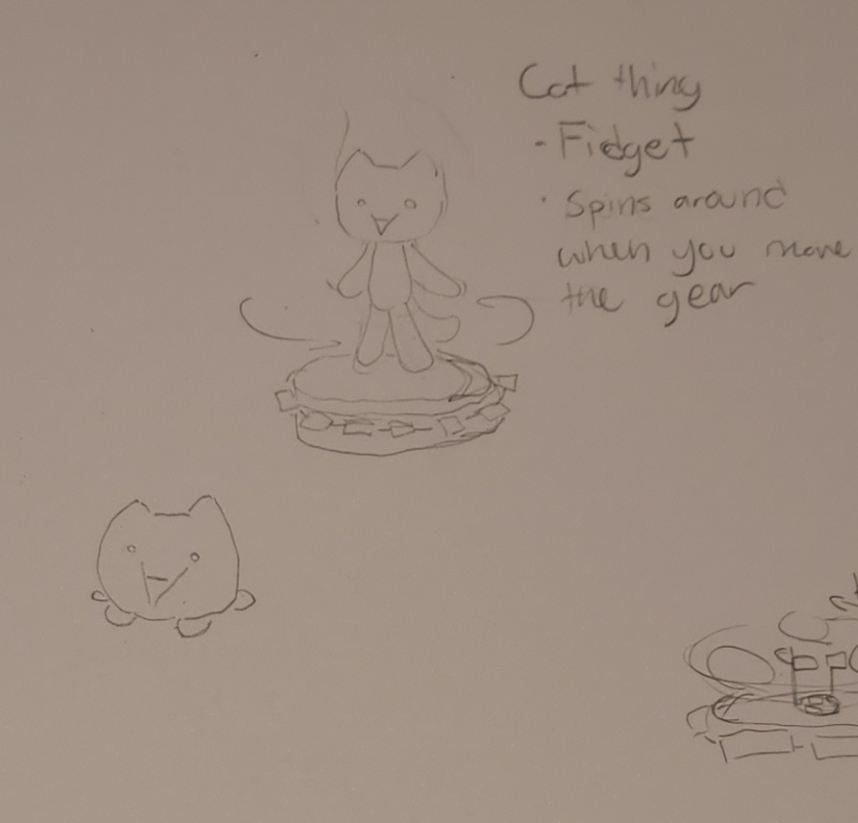 Cat thing
- Fidget
· Spins around
when you move
the gear